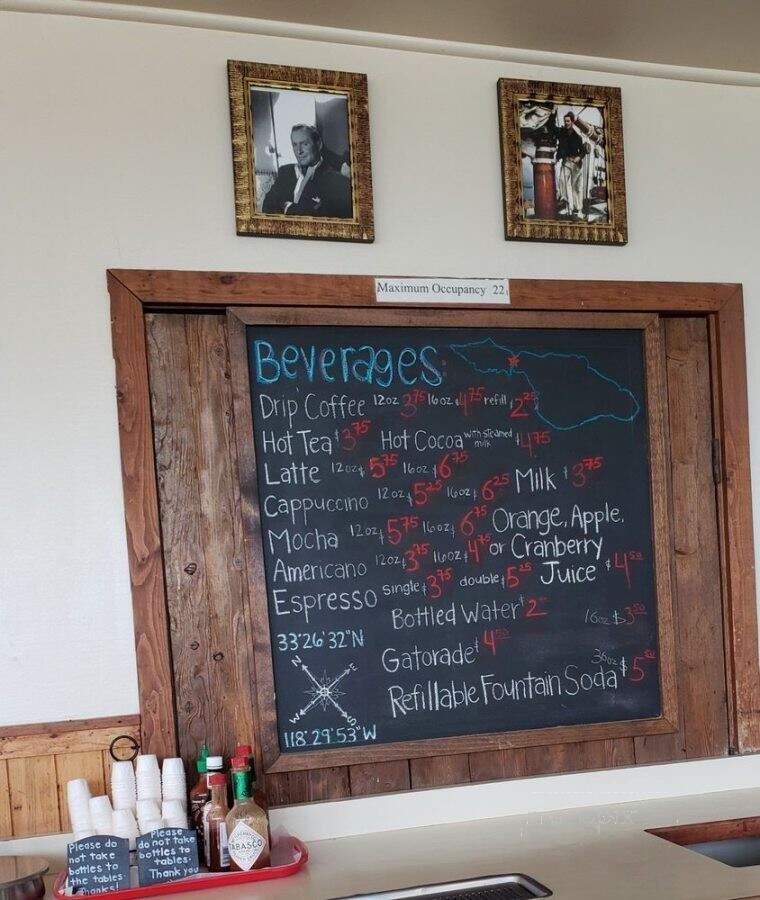 Maximum Occupancy 22
Beverages:
Drip Coffee 12oz 3.75 16oz $4.75 refill $2.25
Hot Tea $3.75 Hot Cocoa with steamed milk $4.75
Latte 12oz $5.75 16oz $6.75
Milk $3.75
Cappuccino 12oz $5.25 16oz $6.25
Mocha 12oz $5.75 16oz $6.75
Orange, Apple,
or Cranberry
Juice $4.50
Americano 12oz $3.75 16oz $4.75
Espresso single $3.75 double $5.25
Bottled Water $2
Gatorade $4.50
16oz $3.50
36oz $5.50
Refillable Fountain Soda
33°26'32"N
N E
W S
118°29'53"W
Please do
not take
bottles to
the tables
Thanks!
Please
do not take
bottles to
tables.
Thank you
TABASCO